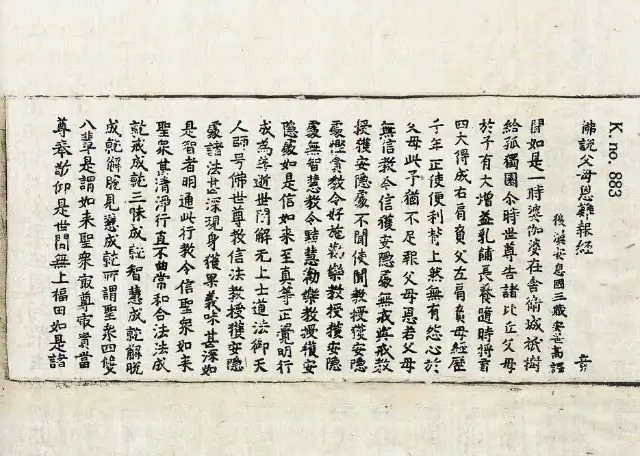 K. no. 883
佛說父母恩難報經
後漢安息國三藏安世高譯
聞如是一時婆伽婆在舍衛城祇樹
給孤獨園尒時世尊告諸比丘父母
於子有大增益乳餔長養隨時將育
四大得成右肩負父左肩負母經歷
千年正使便利背上然無有怨心於
父母此子猶不足報父母恩若父母
無信教令信獲安隱處無戒與戒教
授獲安隱處不聞使聞教授獲安隱
處慳貪教令好施勸樂教授獲安隱
處無智慧教令黠慧勸樂教授獲安
隱處如是信如来至真等正覺明行
成為善逝世間解无上士道法御天
人師号佛世尊教信法教授獲安隱
處諸法甚深現身獲果義味甚深如
是智者明通此行教令信聖衆如来
聖衆甚清淨行直不曲常和合法法成
就戒成就三昧成就智慧成就解脫
成就解脫見慧成就所謂聖衆四雙
八輩是謂如来聖衆㝡尊㝡貴當
尊奉敬仰是世間無上福田如是諸